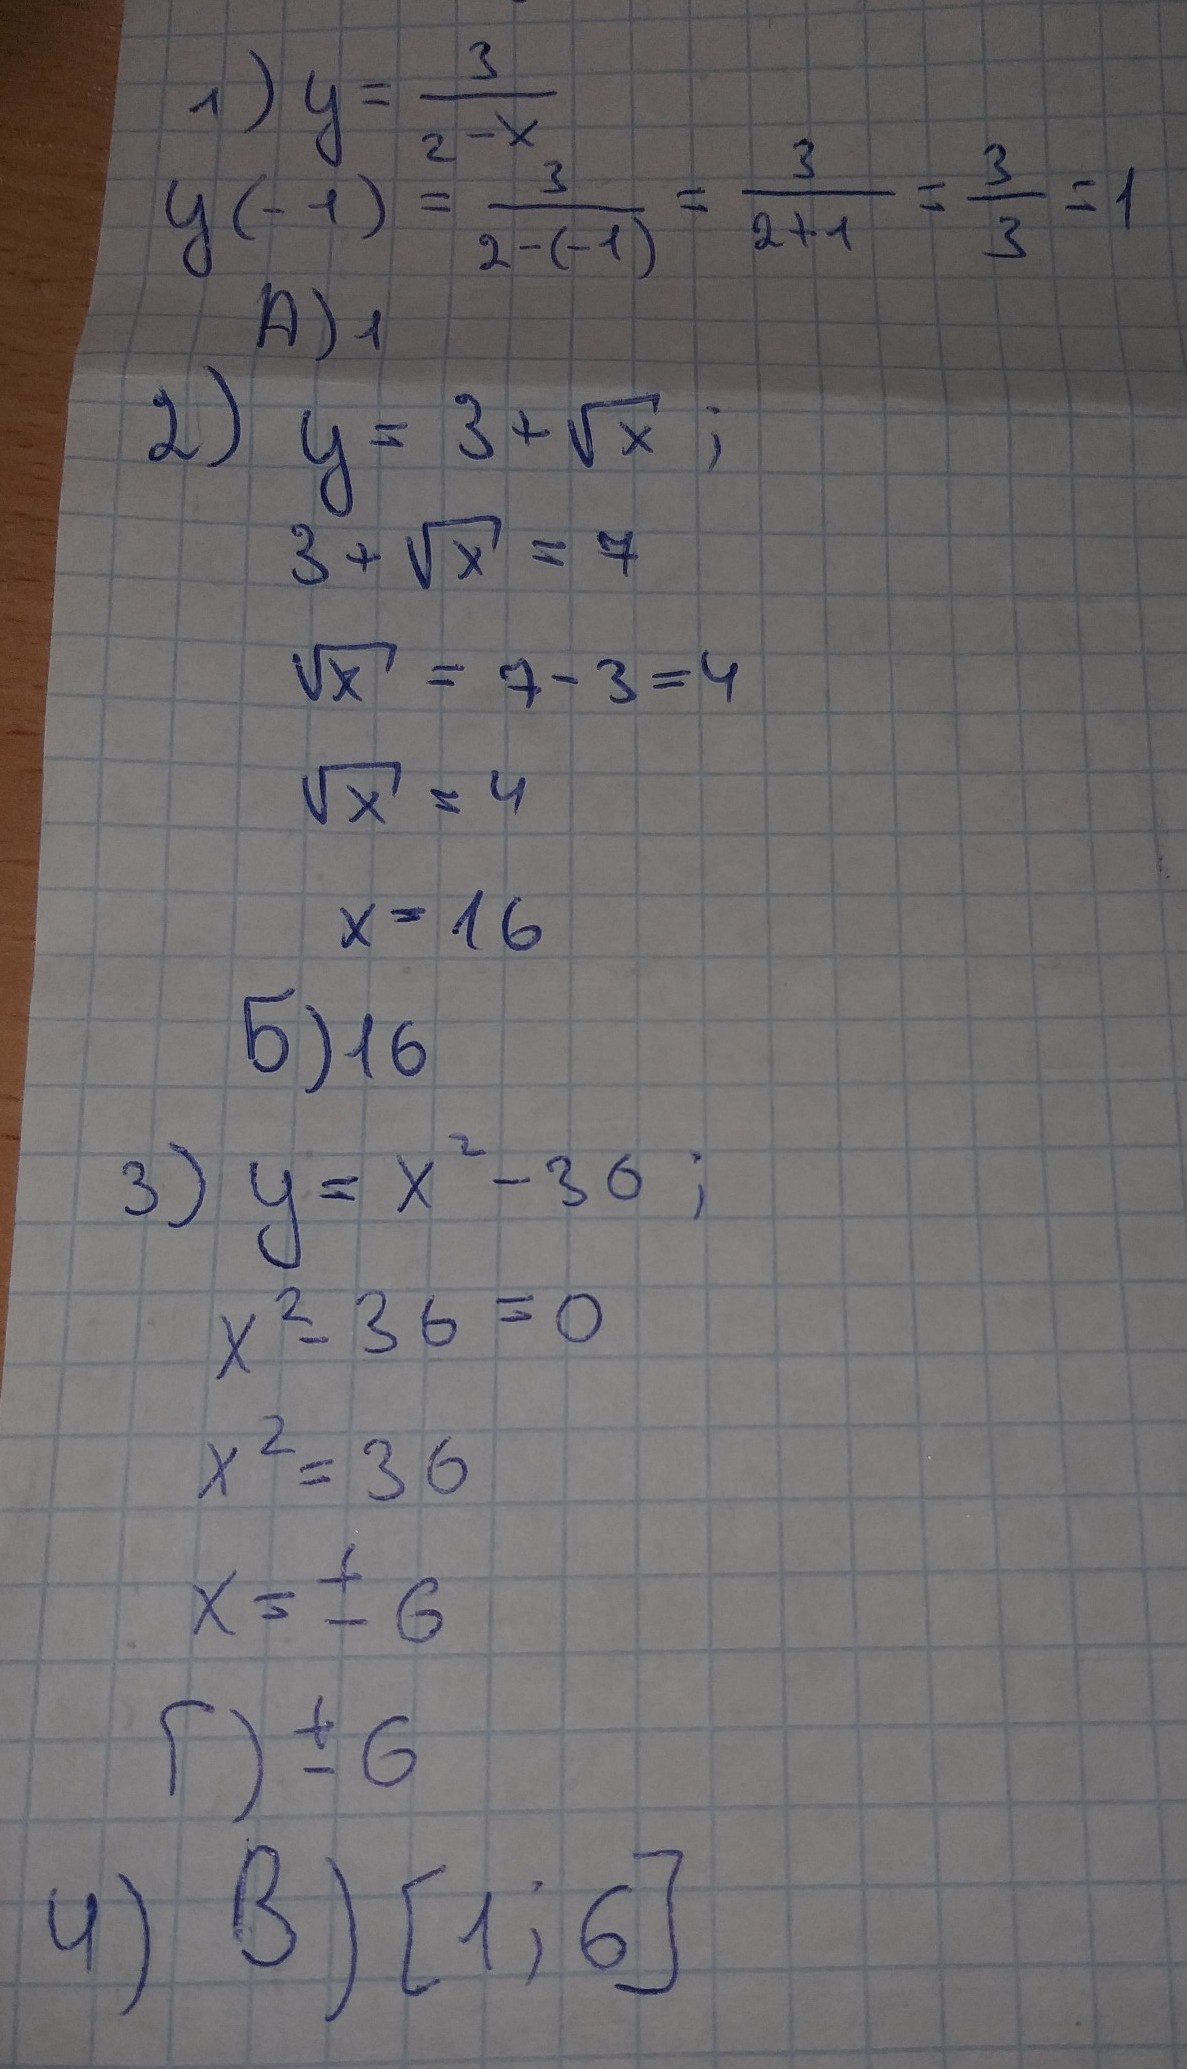 1) y = 3/(2-x)
y(-1) = 3/(2-(-1)) = 3/(2+1) = 3/3 = 1
А) 1
2) y = 3 + √x ;
3 + √x = 7
√x = 7 - 3 = 4
√x = 4
x = 16
Б) 16
3) y = x² - 36 ;
x² - 36 = 0
x² = 36
x = ± 6
Г) ± 6
4) В) [1; 6]